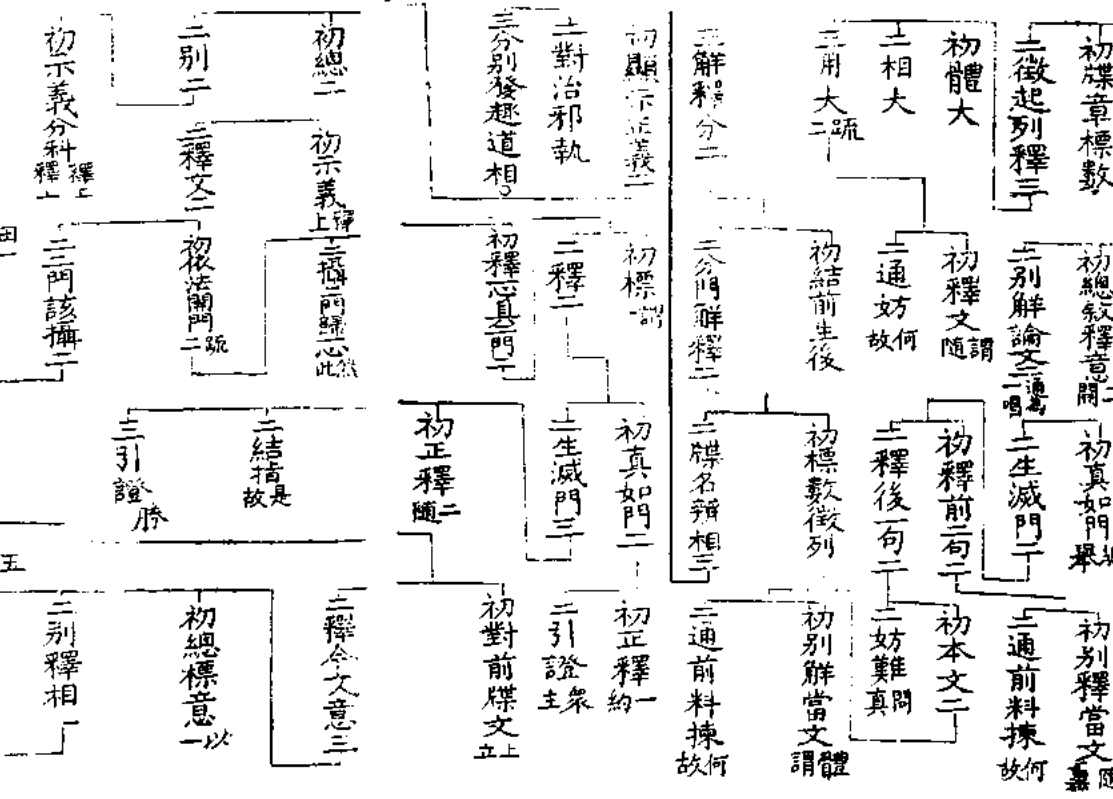 初牒章標數
二徵起列釋三
初體大
二相大
三用大二疏
三解釋分二
初顯示正義二
二對治邪執
三分別發趣道相
初總二
二別二
初示義分科釋上
初示義上
二釋文二
初總敘釋意
二別解論文二
初釋文隨謂
二通妨故何
初結前生後
二分門解釋二
初標謂
二釋二
初釋心真二門二
二攝兩歸心此
初依法開門二疏
二二門該攝二
初真如門
二生滅門二
初釋前二句二
二釋後一句二
初標數徵列
二牒名辨相三
初真如門二
二生滅門三
初正釋隨二
二結指故是
三引證勝
初別釋當文
二通前料揀故何
初本文二
二妨難真問
初別解當文謂體
二通前料揀故何
初正釋約一
二引證主眾
初對前牒文立上
二釋今文意三
初總標意一以
二別釋相
五